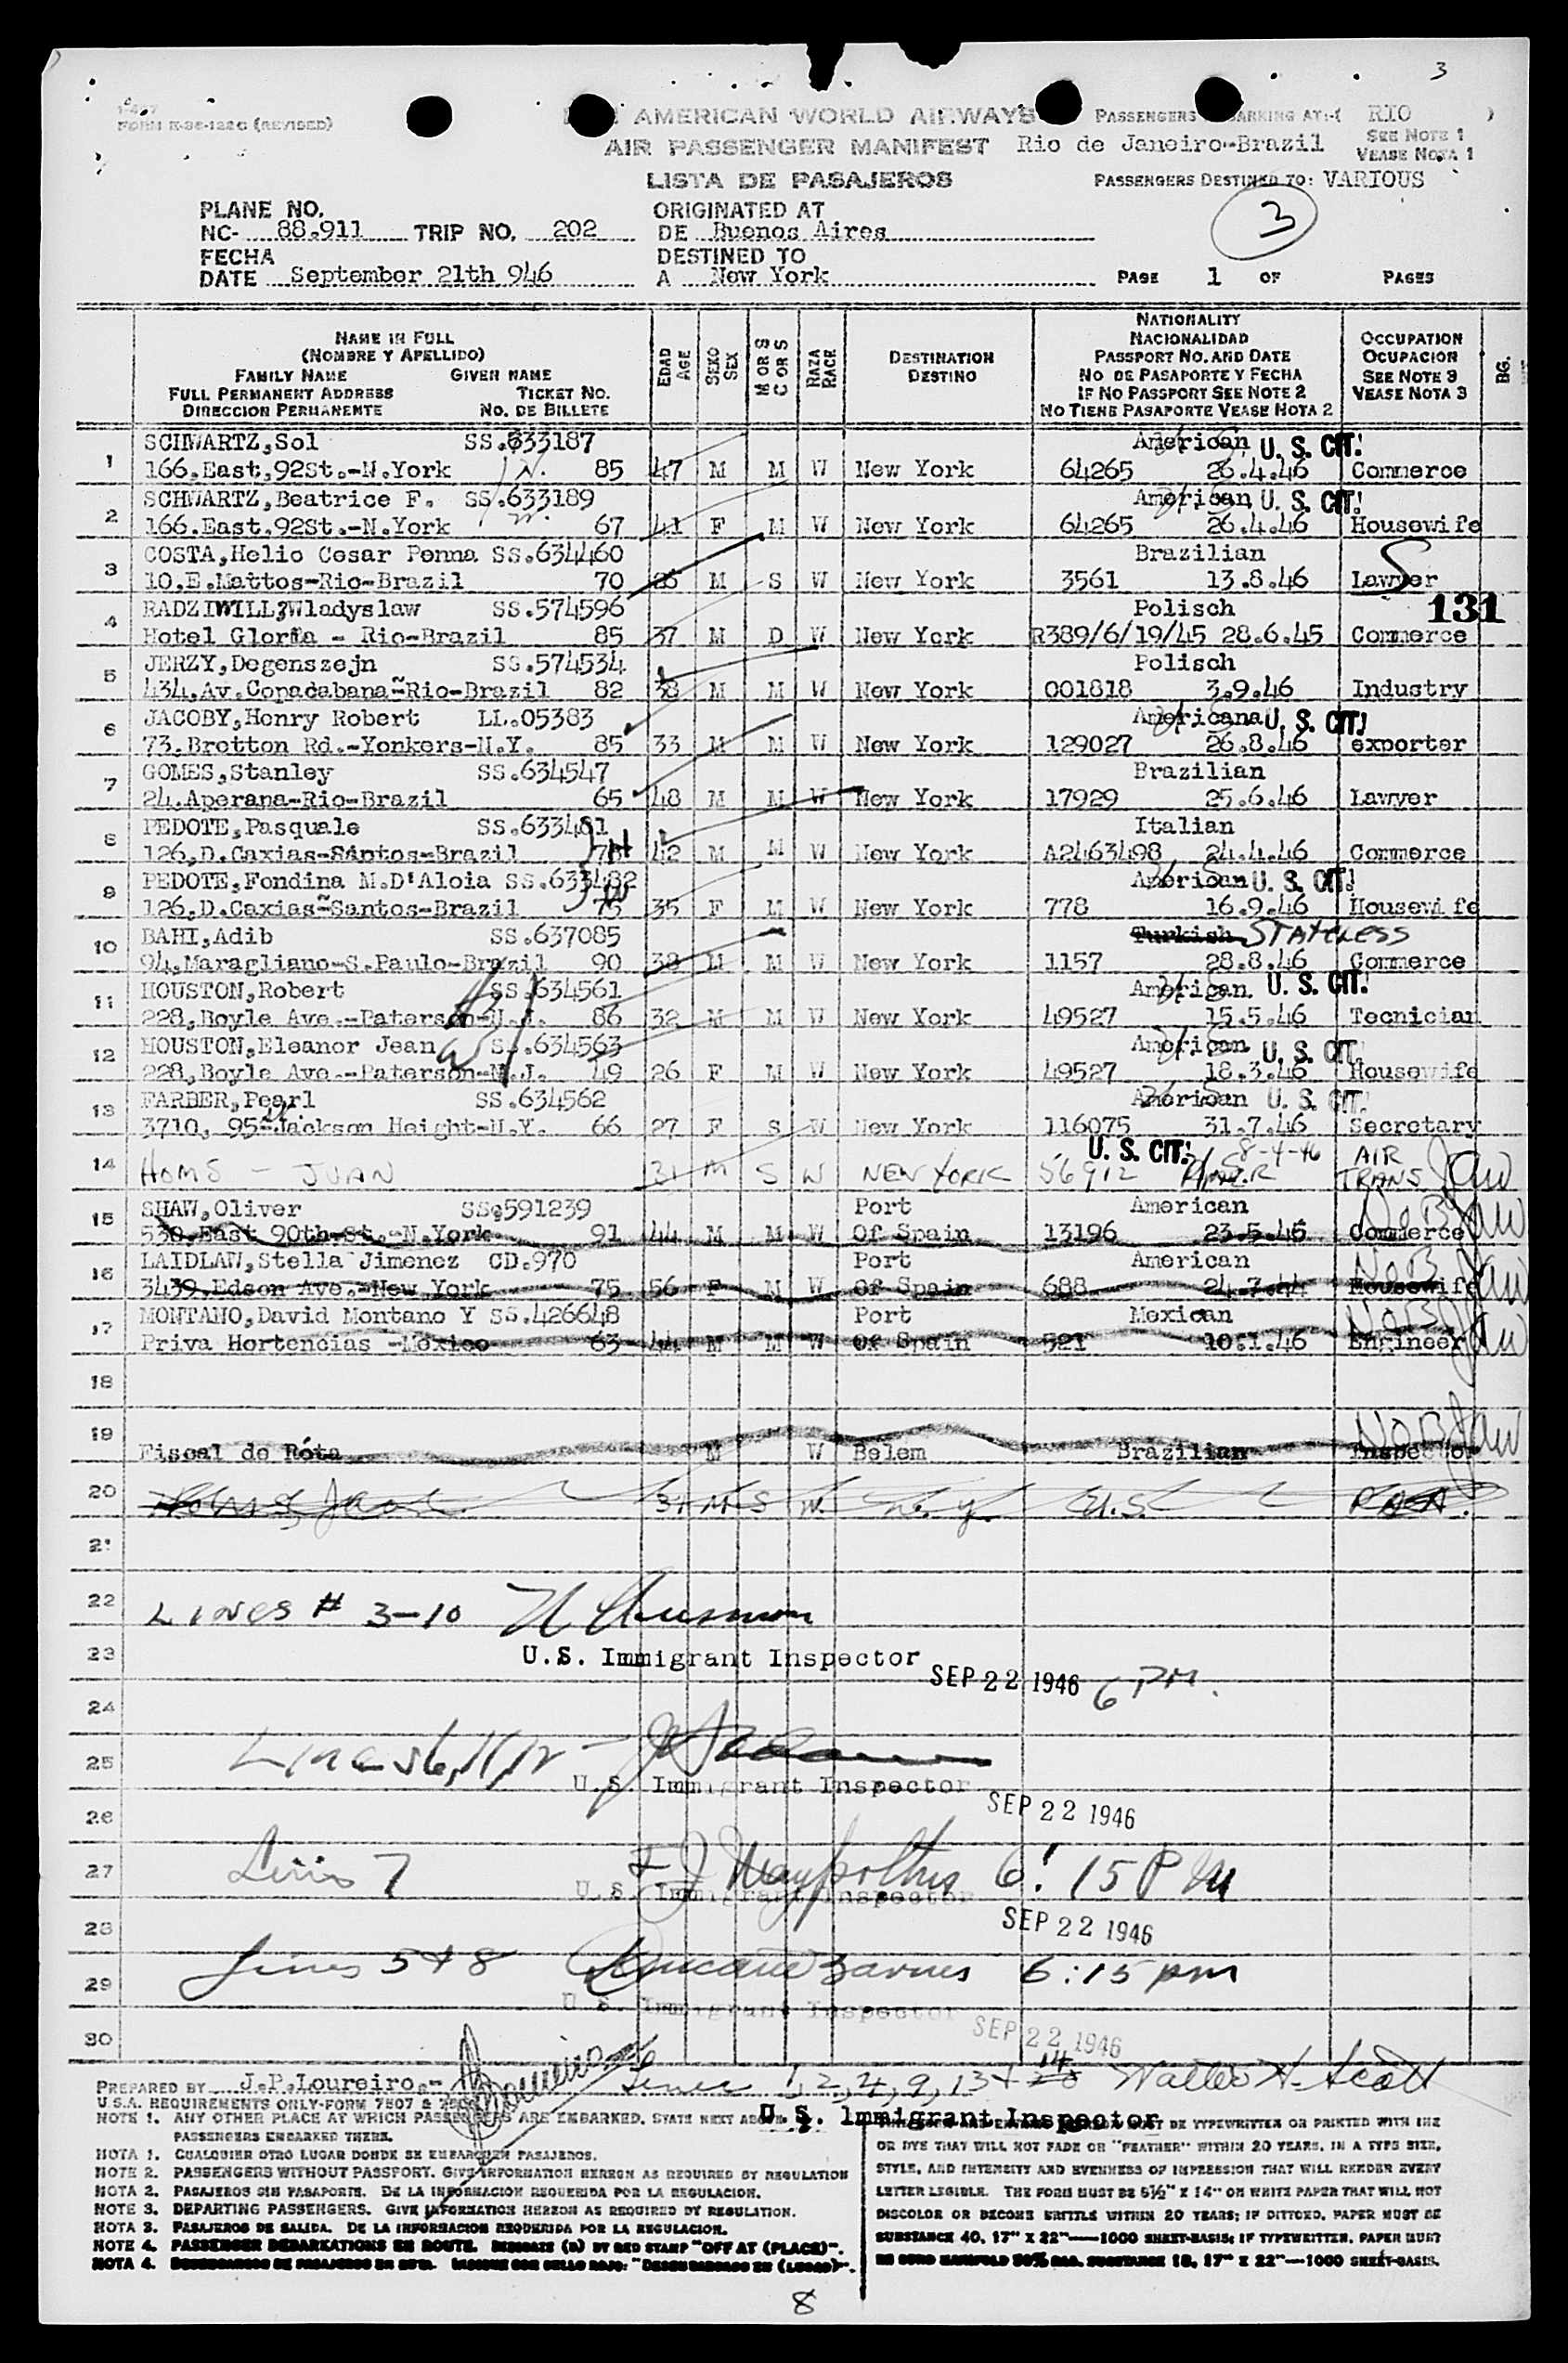 3
FORM K-36-122C (REVISED)
AMERICAN WORLD AIRWAYS
AIR PASSENGER MANIFEST
LISTA DE PASAJEROS
PASSENGERS EMBARKING AT:-( RIO )
Rio de Janeiro-Brazil
SEE NOTE 1
VEASE NOTA 1
PASSENGERS DESTINED TO: VARIOUS
3
PLANE NO.
NC- 88.911 TRIP NO. 202
FECHA
DATE September 21th 946
ORIGINATED AT
DE Buenos Aires
DESTINED TO
A New York
PAGE 1 OF PAGES
NAME IN FULL
(NOMBRE Y APELLIDO)
FAMILY NAME GIVEN NAME
FULL PERMANENT ADDRESS TICKET NO.
DIRECCION PERMANENTE NO. DE BILLETE
EDAD AGE
SEXO SEX
M OR S C OR S
RAZA RACE
DESTINATION
DESTINO
NATIONALITY
NACIONALIDAD
PASSPORT NO. AND DATE
NO DE PASAPORTE Y FECHA
IF NO PASSPORT SEE NOTE 2
NO TIENE PASAPORTE VEASE NOTA 2
OCCUPATION
OCUPACION
SEE NOTE 3
VEASE NOTA 3
BG.
1 SCHWARTZ,Sol SS.633187 American U. S. CIT.
166.East.92St.-N.York 85 47 M M W New York 64265 26.4.46 Commerce
2 SCHWARTZ,Beatrice F. SS.633189 American U. S. CIT.
166.East.92St.-N.York 67 41 F M W New York 64265 26.4.46 Housewife
3 COSTA,Helio Cesar Penna SS.634460 Brazilian
10.E.Mattos-Rio-Brazil 70 26 M S W New York 3561 13.8.46 Lawyer
131
4 RADZIWILL,Wladyslaw SS.574596 Polisch
Hotel Gloria - Rio-Brazil 85 37 M D W New York R389/6/19/45 28.6.45 Commerce
5 JERZY,Degenszejn SS.574534 Polisch
434.Av.Copacabana-Rio-Brazil 82 38 M M W New York 001818 3.9.46 Industry
6 JACOBY,Henry Robert LL.05383 Americana U. S. CIT.
73.Bretton Rd.-Yonkers-N.Y. 85 33 M M W New York 129027 26.8.46 exporter
7 GOMES,Stanley SS.634547 Brazilian
24.Aperana-Rio-Brazil 65 48 M M W New York 17929 25.6.46 Lawyer
8 PEDOTE,Pasquale SS.633481 Italian
126,D.Caxias-Santos-Brazil 78 42 M M W New York A2463498 24.4.46 Commerce
9 PEDOTE,Fondina M.D'Aloia SS.633482 American U. S. CIT.
126,D.Caxias-Santos-Brazil 75 35 F M W New York 778 16.9.46 Housewife
10 BAHI,Adib SS.637085 Turkish STATELESS
94.Maragliano-S.Paulo-Brazil 90 38 M M W New York 1157 28.8.46 Commerce
11 HOUSTON,Robert SS.634561 American U. S. CIT.
228,Boyle Ave.-Paterson-N.J. 86 32 M M W New York 49527 15.5.46 Tecnician
12 HOUSTON,Eleanor Jean SS.634563 American U. S. CIT.
228,Boyle Ave.-Paterson-N.J. 49 26 F M W New York 49527 18.3.46 Housewife
13 FARBER,Pearl SS.634562 American U. S. CIT.
3710, 95-Jackson Height-N.Y. 66 27 F S W New York 116075 31.7.46 Secretary
U. S. CIT. 8-4-46 AIR
14 HOMS - JUAN 31 M S W NEW YORK 56912 TRANS
15 SHAW,Oliver SS.591239 Port American NOB
530.East 90th.St.-N.York 91 44 M M W Of Spain 13196 23.5.46 Commerce
16 LAIDLAW,Stella Jimenez CD.970 Port American NOB
3439.Edson Ave.-New York 75 56 F M W Of Spain 688 24.7.44 Housewife
17 MONTANO,David Montano Y SS.426648 Port Mexican NOB
Priva Hortencias -Mexico 63 44 M M W Of Spain 521 10.1.46 Engineer
18
19 NOB
Fiscal de Róta M W Belem Brazilian Inspector
20 31 M S W. N.Y. U.S.
21
22 LINES # 3-10
23 U.S. Immigrant Inspector SEP 22 1946 6 PM.
24
25 Lines 6,11,12
U.S. Immigrant Inspector
26 SEP 22 1946
27 Line 7 6:15 PM
U.S. Immigrant Inspector
28 SEP 22 1946
29 Lines 5 & 8 Duncan Barnes 6:15 pm
U.S. Immigrant Inspector
30 SEP 22 1946
PREPARED BY J.P.Loureiro.- Lines 1,2,4,9,13 & 20 14 Walter H. Scott
U.S. Immigrant Inspector
U.S.A. REQUIREMENTS ONLY-FORM 7507 &
NOTE 1. ANY OTHER PLACE AT WHICH PASSENGERS ARE EMBARKED. STATE NEXT ABOVE
PASSENGERS EMBARKED THERE.
NOTA 1. CUALQUIER OTRO LUGAR DONDE SE EMBARQUEN PASAJEROS.
NOTE 2. PASSENGERS WITHOUT PASSPORT. GIVE INFORMATION HEREON AS REQUIRED BY REGULATION
NOTA 2. PASAJEROS SIN PASAPORTE. DE LA INFORMACION REQUERIDA POR LA REGULACION.
NOTE 3. DEPARTING PASSENGERS. GIVE INFORMATION HEREON AS REQUIRED BY REGULATION.
NOTA 3. PASAJEROS DE SALIDA. DE LA INFORMACION REQUERIDA POR LA REGULACION.
NOTE 4. PASSENGER DEBARKATIONS EN ROUTE. INDICATE (D) BY RED STAMP "OFF AT (PLACE)".
NOTA 4. DESEMBARCOS DE PASAJEROS EN RUTA. INDIQUE CON SELLO ROJO: "DESEMBARCADO EN (LUGAR)".
MUST BE TYPEWRITTEN OR PRINTED WITH INK
OR DYE THAT WILL NOT FADE OR "FEATHER" WITHIN 20 YEARS, IN A TYPE SIZE,
STYLE, AND INTENSITY AND EVENNESS OF IMPRESSION THAT WILL RENDER EVERY
LETTER LEGIBLE. THE FORM MUST BE 8½" X 14" ON WHITE PAPER THAT WILL NOT
DISCOLOR OR BECOME BRITTLE WITHIN 20 YEARS; IF DITTOED, PAPER MUST BE
SUBSTANCE 40, 17" X 22"—1000 SHEET-BASIS; IF TYPEWRITTEN, PAPER MUST
BE MANIFOLD 50% RAG. SUBSTANCE 18, 17" X 22"—1000 SHEET-BASIS.
8